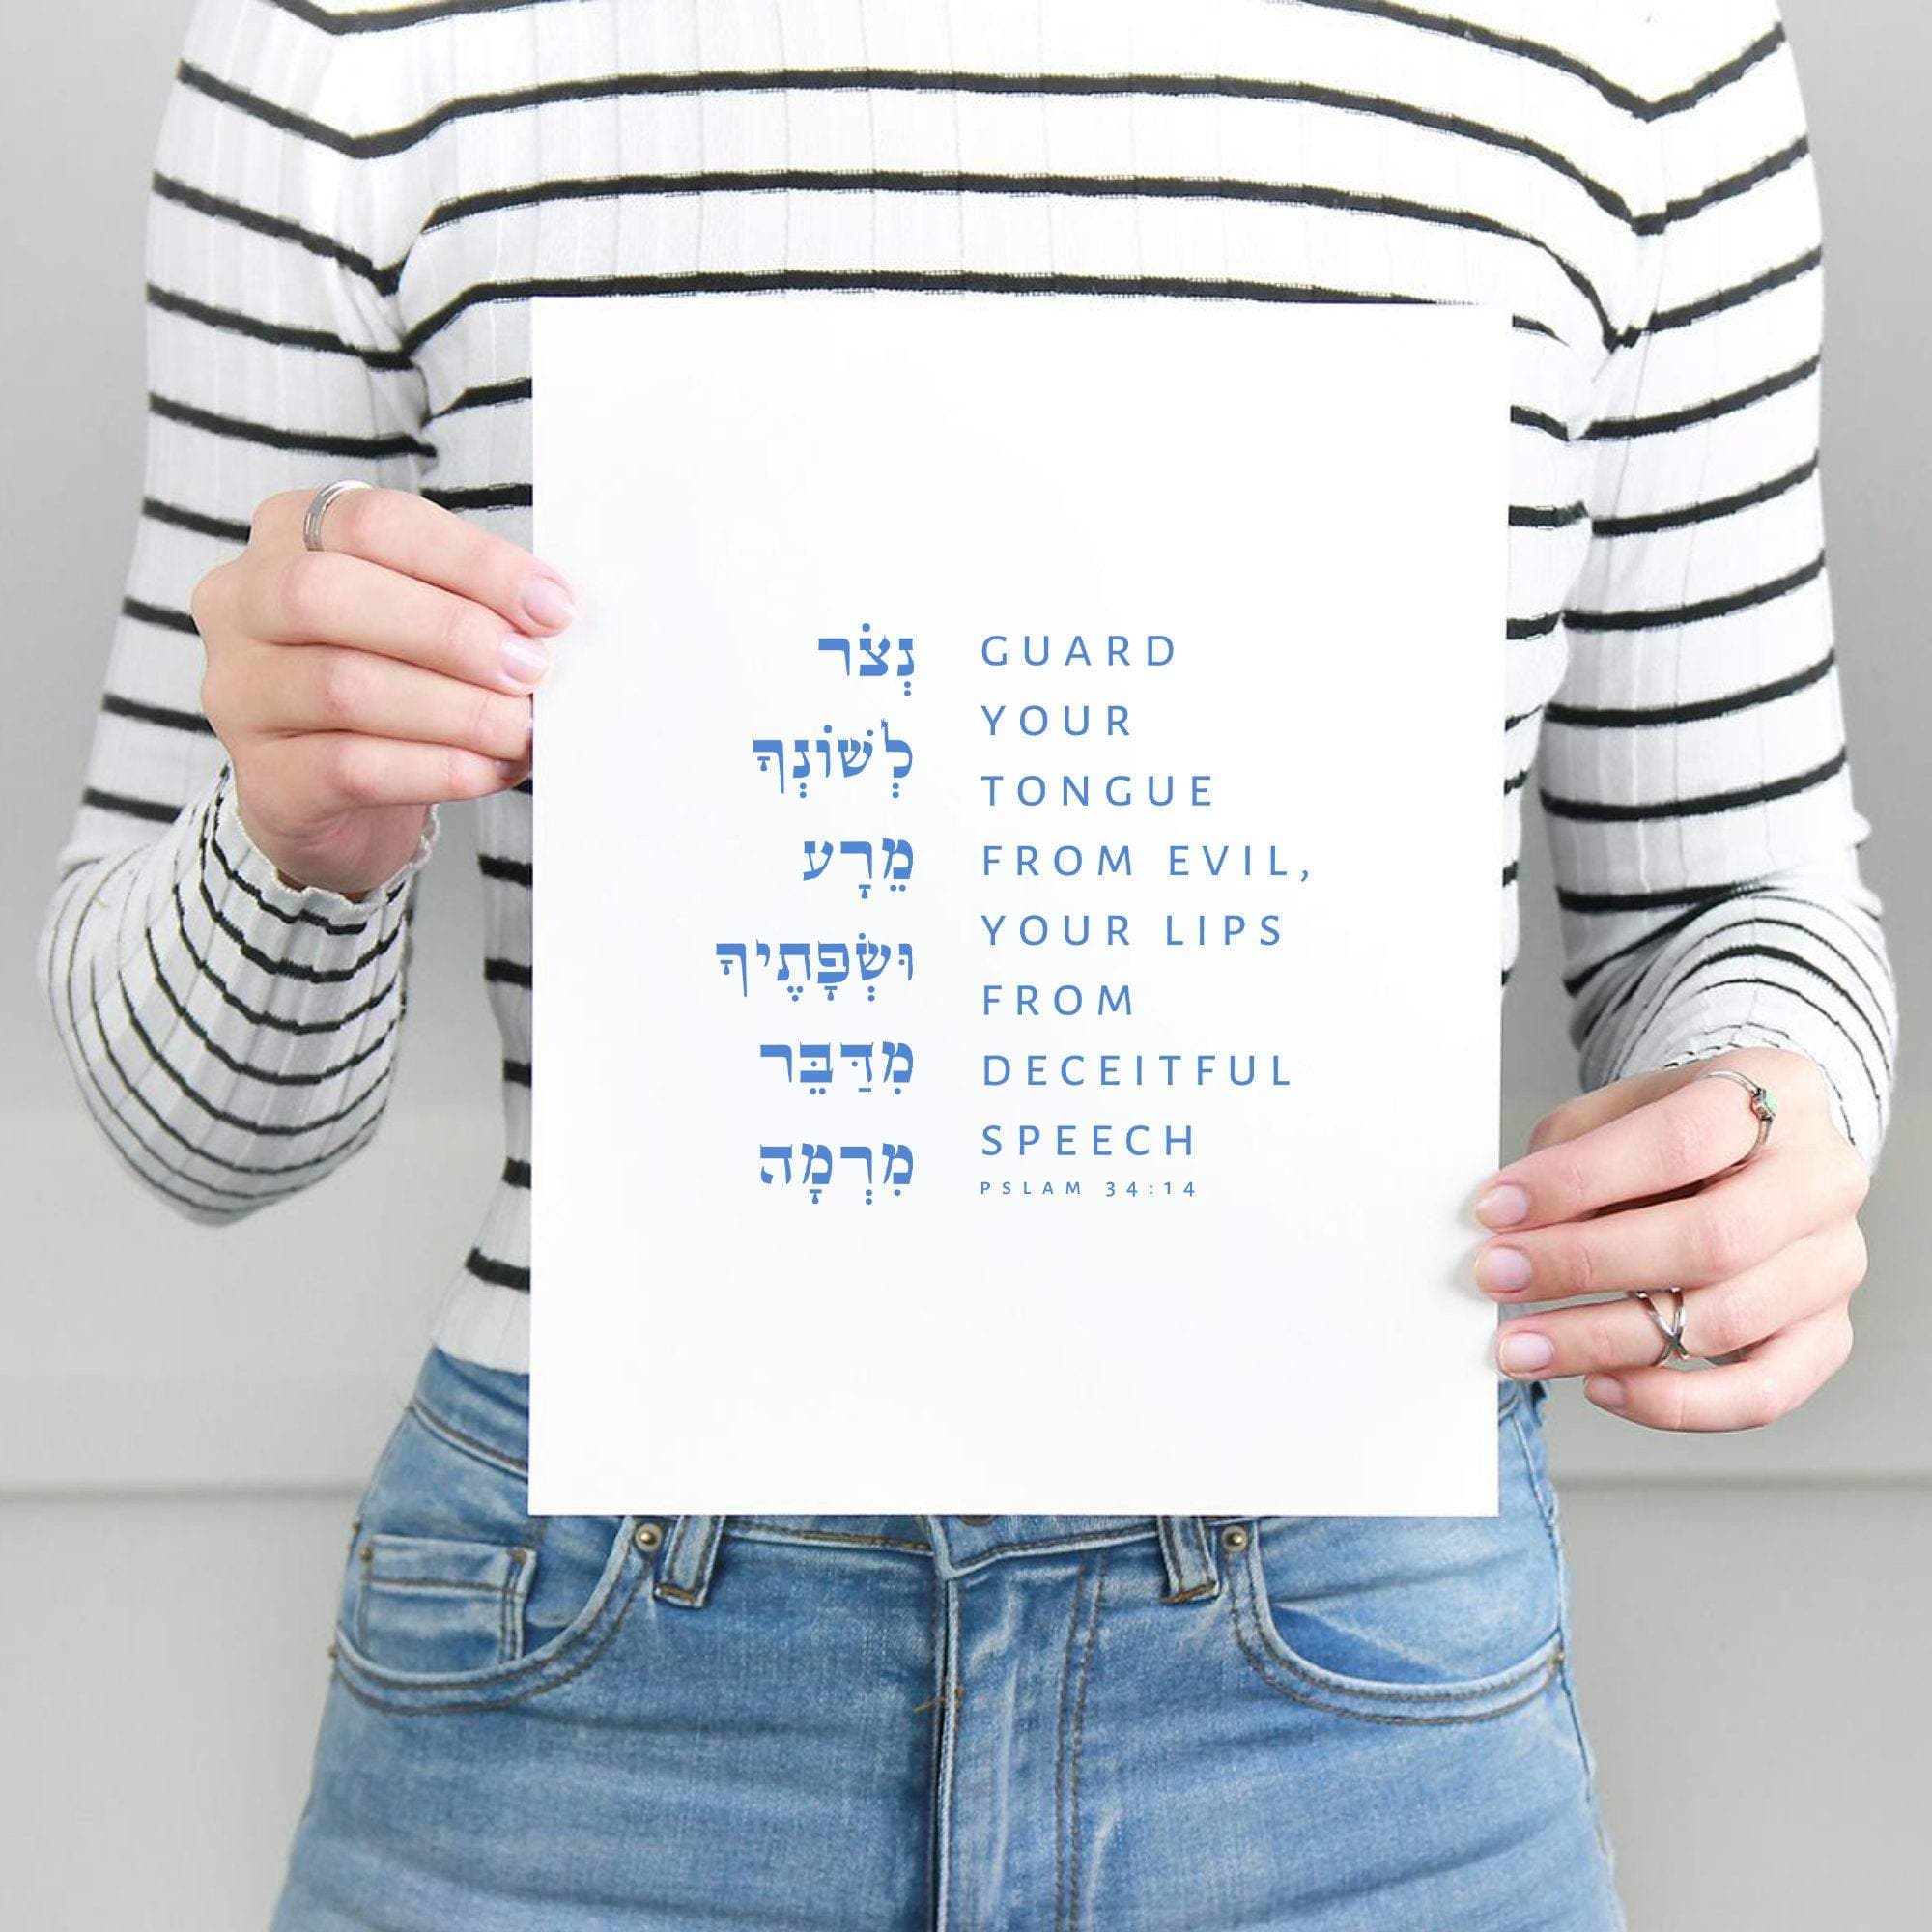 נְצֹר
לְשׁוֹנְךָ
מֵרָע
וּשְׂפָתֶיךָ
מִדַּבֵּר
מִרְמָה
GUARD
YOUR
TONGUE
FROM EVIL,
YOUR LIPS
FROM
DECEITFUL
SPEECH
PSLAM 34:14